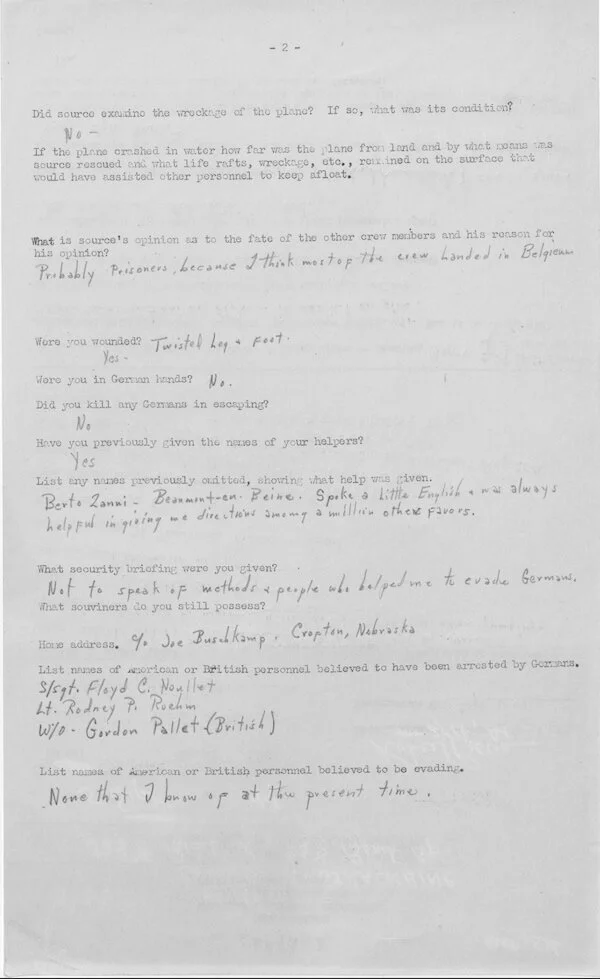 - 2 -
Did source examine the wreckage of the plane? If so, what was its condition?
No -
If the plane crashed in water how far was the plane from land and by what means was
source rescued and what life rafts, wreckage, etc., remained on the surface that
would have assisted other personnel to keep afloat.
What is source's opinion as to the fate of the other crew members and his reason for
his opinion?
Probably Prisoners, because I think most of the crew landed in Belgieum
Were you wounded? Twisted Leg & Foot.
Yes -
Were you in German hands? No.
Did you kill any Germans in escaping?
No
Have you previously given the names of your helpers?
Yes
List any names previously omitted, showing what help was given.
Berto Zanni - Beaumont-en-Beine. Spoke a little English & was always
helpful in giving me directions among a million other favors.
What security briefing were you given?
Not to speak of methods & people who helped me to evade Germans.
What souviners do you still possess?
Home address. c/o Joe Buschkamp, Crofton, Nebraska
List names of American or British personnel believed to have been arrested by Germans.
S/sgt. Floyd C.
Lt. Rodney P. Roehm
W/O - Gordon Pallet (British)
List names of American or British personnel believed to be evading.
None that I know of at the present time.